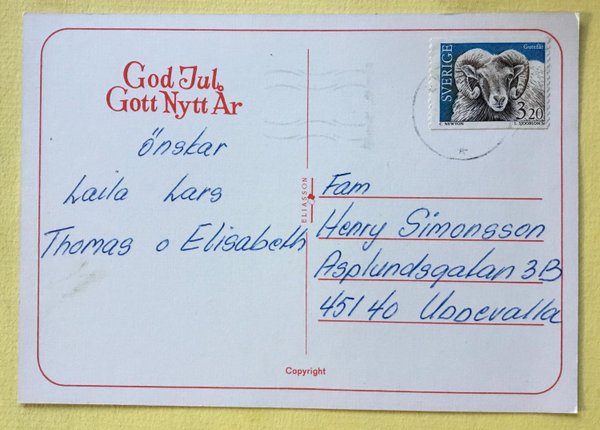 God Jul
Gott Nytt År
önskar
Laila Lars
Thomas o Elisabeth
ELIASSON
SVERIGE
Gutefår
3.20
C. NEWTON
L. SJÖÖBLOM
Fam
Henry Simonsson
Asplundsgatan 3B
451 40 Uddevalla
Copyright